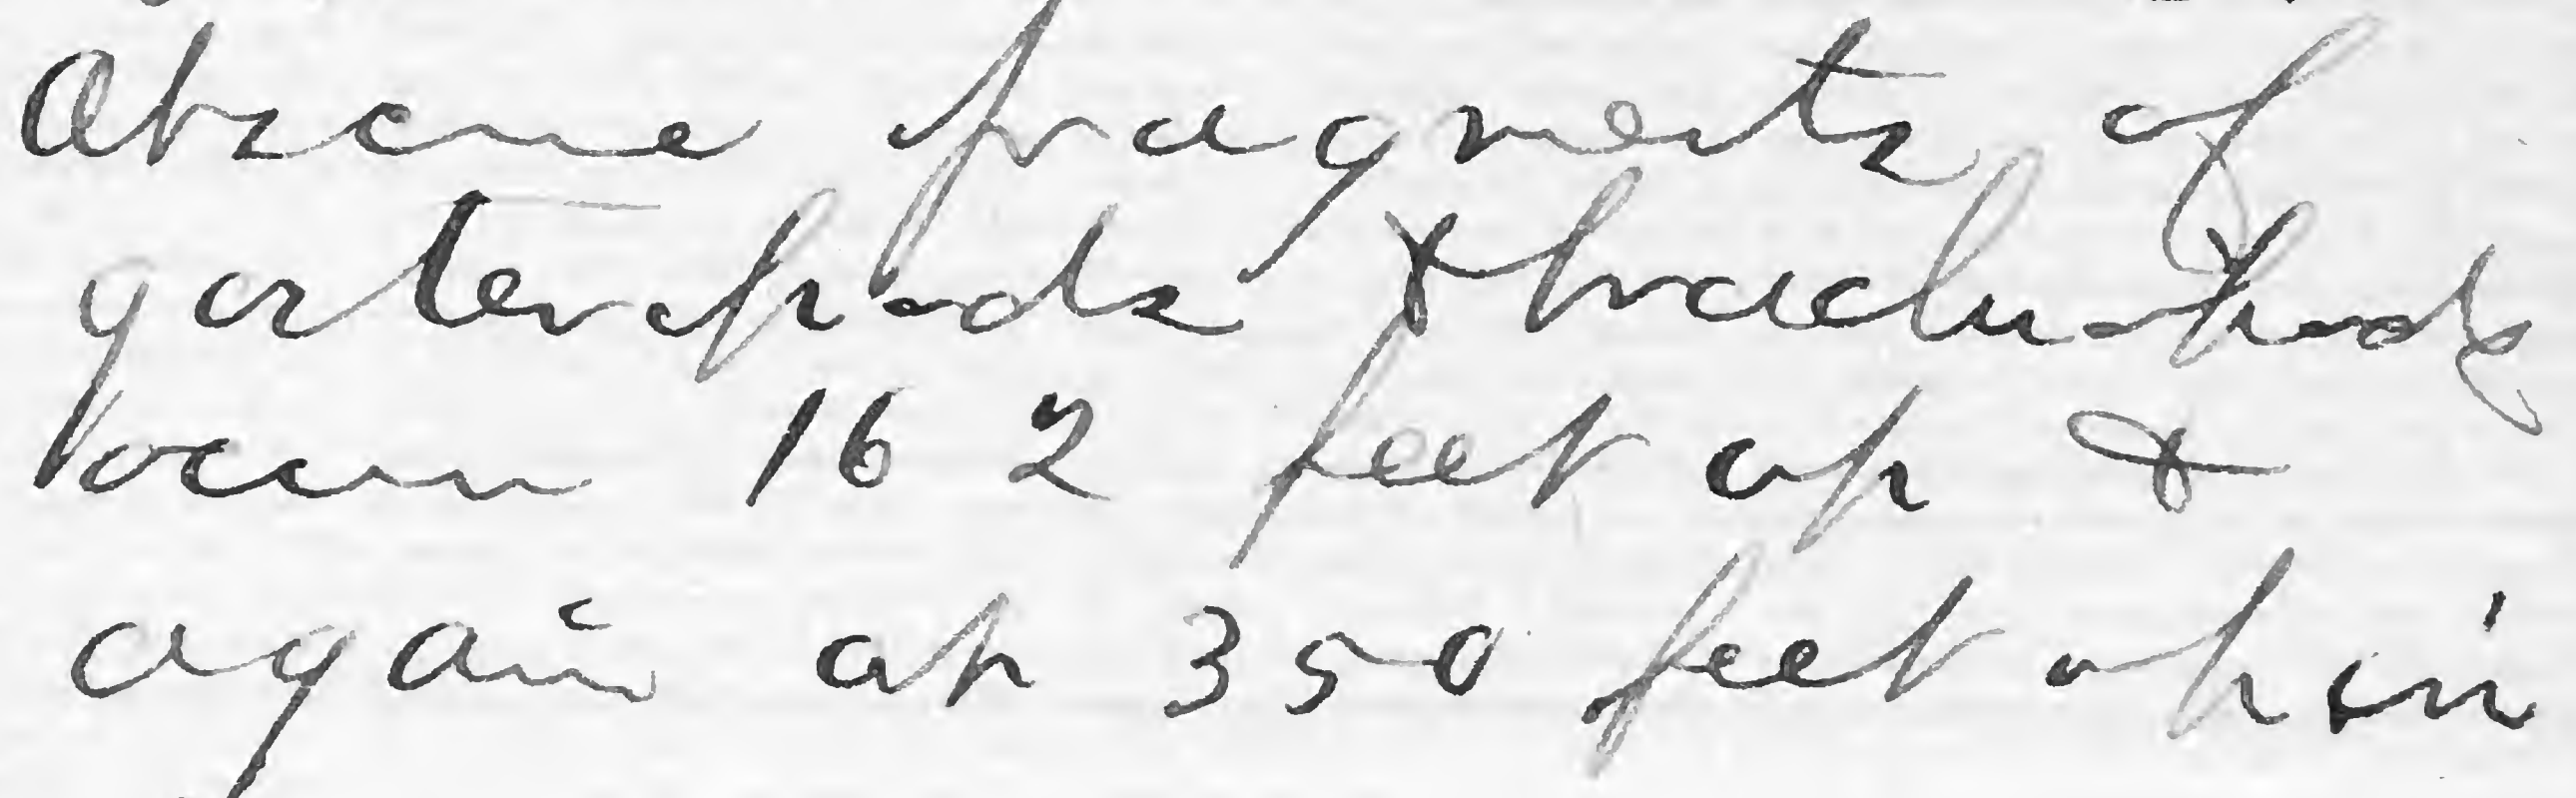 Obscure fragments of
gasteropods & brachiopods
occur 162 feet up &
again up 350 feet up in